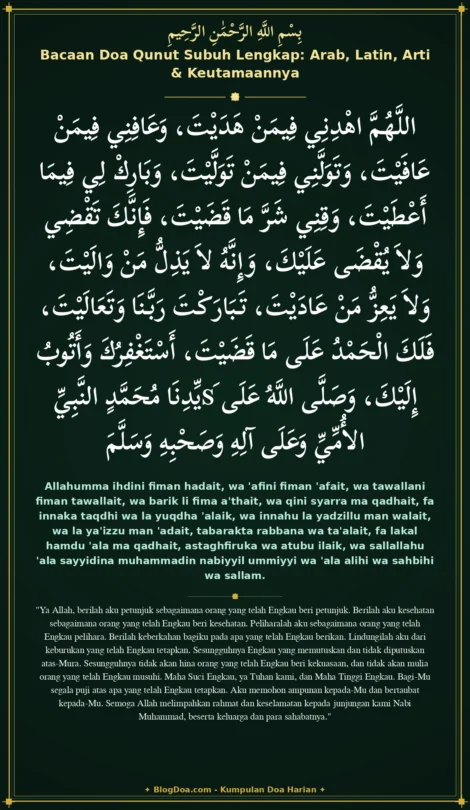 بِسْمِ اللَّهِ الرَّحْمَٰنِ الرَّحِيمِ
Bacaan Doa Qunut Subuh Lengkap: Arab, Latin, Arti
& Keutamaannya
اللَّهُمَّ اهْدِنِي فِيمَنْ هَدَيْتَ، وَعَافِنِي فِيمَنْ
عَافَيْتَ، وَتَوَلَّنِي فِيمَنْ تَوَلَّيْتَ، وَبَارِكْ لِي فِيمَا
أَعْطَيْتَ، وَقِنِي شَرَّ مَا قَضَيْتَ، فَإِنَّكَ تَقْضِي
وَلاَ يُقْضَى عَلَيْكَ، وَإِنَّهُ لاَ يَذِلُّ مَنْ وَالَيْتَ،
وَلاَ يَعِزُّ مَنْ عَادَيْتَ، تَبَارَكْتَ رَبَّنَا وَتَعَالَيْتَ،
فَلَكَ الْحَمْدُ عَلَى مَا قَضَيْتَ، أَسْتَغْفِرُكَ وَأَتُوبُ
إِلَيْكَ، وَصَلَّى اللَّهُ عَلَى sَيِّدِنَا مُحَمَّدٍ النَّبِيِّ
الأُمِّيِّ وَعَلَى آلِهِ وَصَحْبِهِ وَسَلَّمَ
Allahumma ihdini fiman hadait, wa 'afini fiman 'afait, wa tawallani
fiman tawallait, wa barik li fima a'thait, wa qini syarra ma qadhait, fa
innaka taqdhi wa la yuqdha 'alaik, wa innahu la yadzillu man walait,
wa la ya'izzu man 'adait, tabarakta rabbana wa ta'alait, fa lakal
hamdu 'ala ma qadhait, astaghfiruka wa atubu ilaik, wa sallallahu
'ala sayyidina muhammadin nabiyyil ummiyyi wa 'ala alihi wa sahbihi
wa sallam.
"Ya Allah, berilah aku petunjuk sebagaimana orang yang telah Engkau beri petunjuk. Berilah aku kesehatan
sebagaimana orang yang telah Engkau beri kesehatan. Peliharalah aku sebagaimana orang yang telah
Engkau pelihara. Berilah keberkahan bagiku pada apa yang telah Engkau berikan. Lindungilah aku dari
keburukan yang telah Engkau tetapkan. Sesungguhnya Engkau yang memutuskan dan tidak diputuskan
atas-Mura. Sesungguhnya tidak akan hina orang yang telah Engkau beri kekuasaan, dan tidak akan mulia
orang yang telah Engkau musuhi. Maha Suci Engkau, ya Tuhan kami, dan Maha Tinggi Engkau. Bagi-Mu
segala puji atas apa yang telah Engkau tetapkan. Aku memohon ampunan kepada-Mu dan bertaubat
kepada-Mu. Semoga Allah melimpahkan rahmat dan keselamatan kepada junjungan kami Nabi
Muhammad, beserta keluarga dan para sahabatnya."
✦ BlogDoa.com - Kumpulan Doa Harian ✦